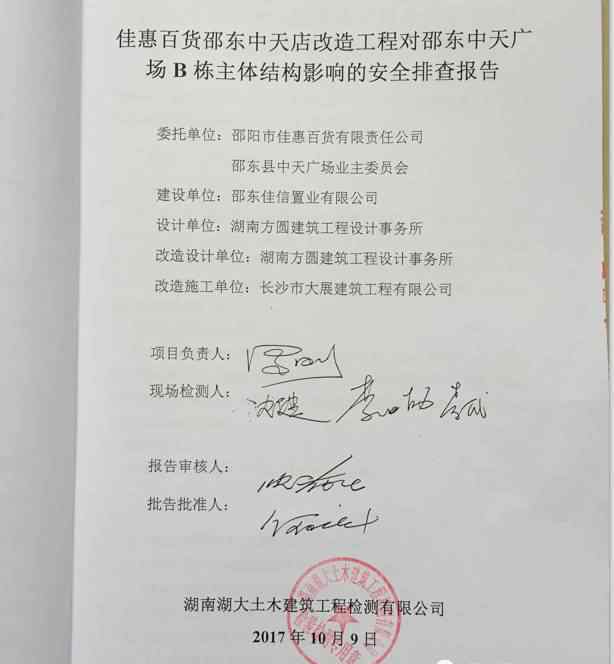 佳惠百货邵东中天店改造工程对邵东中天广
场 B 栋主体结构影响的安全排查报告
委托单位：邵阳市佳惠百货有限责任公司
邵东县中天广场业主委员会
建设单位：邵东佳信置业有限公司
设计单位：湖南方圆建筑工程设计事务所
改造设计单位：湖南方圆建筑工程设计事务所
改造施工单位：长沙市大展建筑工程有限公司
项目负责人：
现场检测人：
报告审核人：
批告批准人：
湖南湖大土木建筑工程检测有限公司
2017 年 10 月 9 日